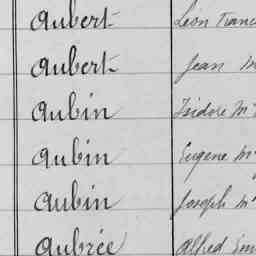 Aubert Léon
Aubert Jean
Aubin Isidore
Aubin Eugene
Aubin Joseph
Aubrée Alfred